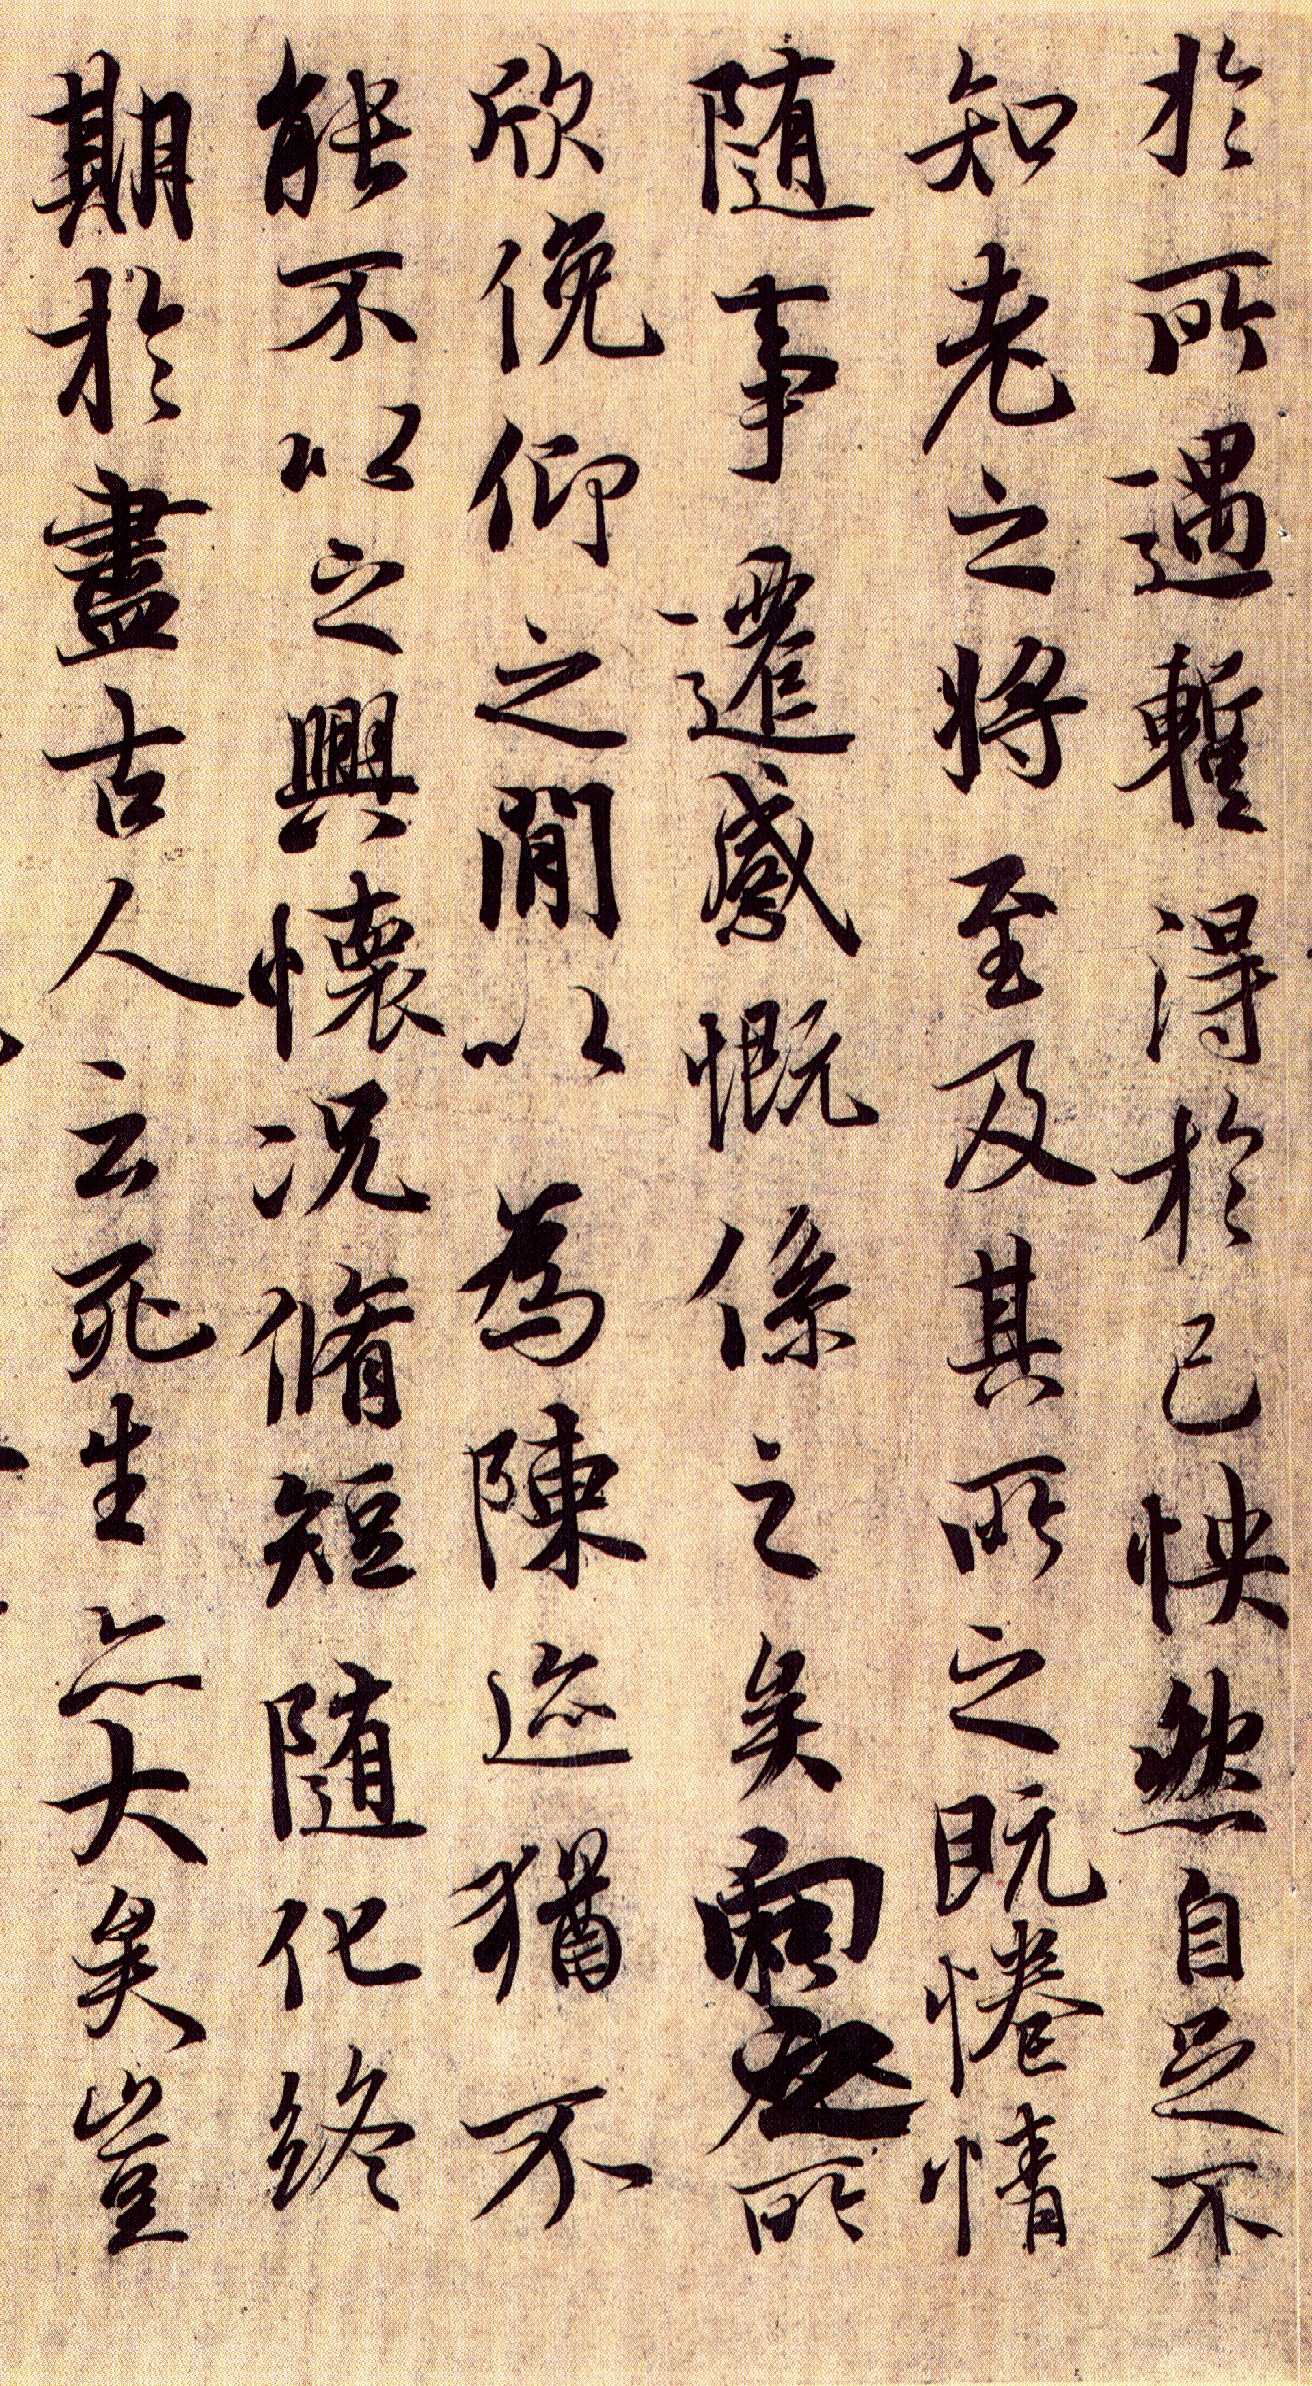 於所遇蹔得於己怏然自足不
知老之將至及其所之既惓情
随事遷感慨係之矣向之所
欣俛仰之閒以為陳迹猶不
能不以之興懷況脩短随化終
期於盡古人云死生亦大矣豈